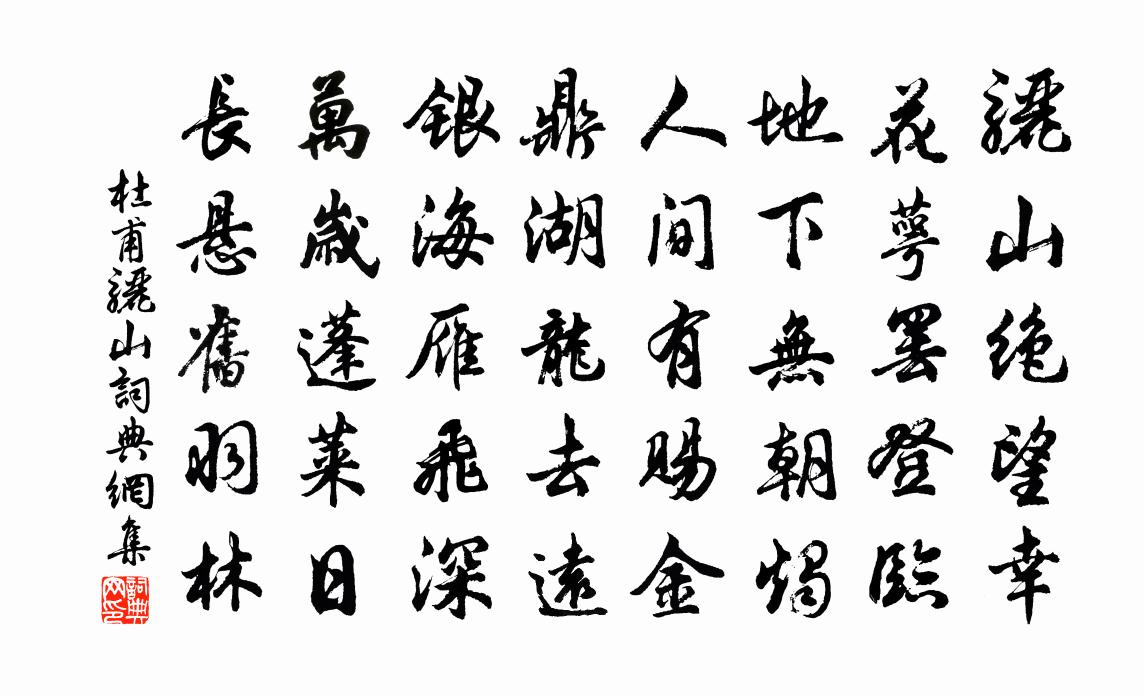 驪山绝望幸
花萼罢登臨
地下無朝燭
人间有賜金
鼎湖龍去遠
銀海雁飛深
萬歲蓬萊日
長悬舊羽林
杜甫驪山詞典網集
詞典网印